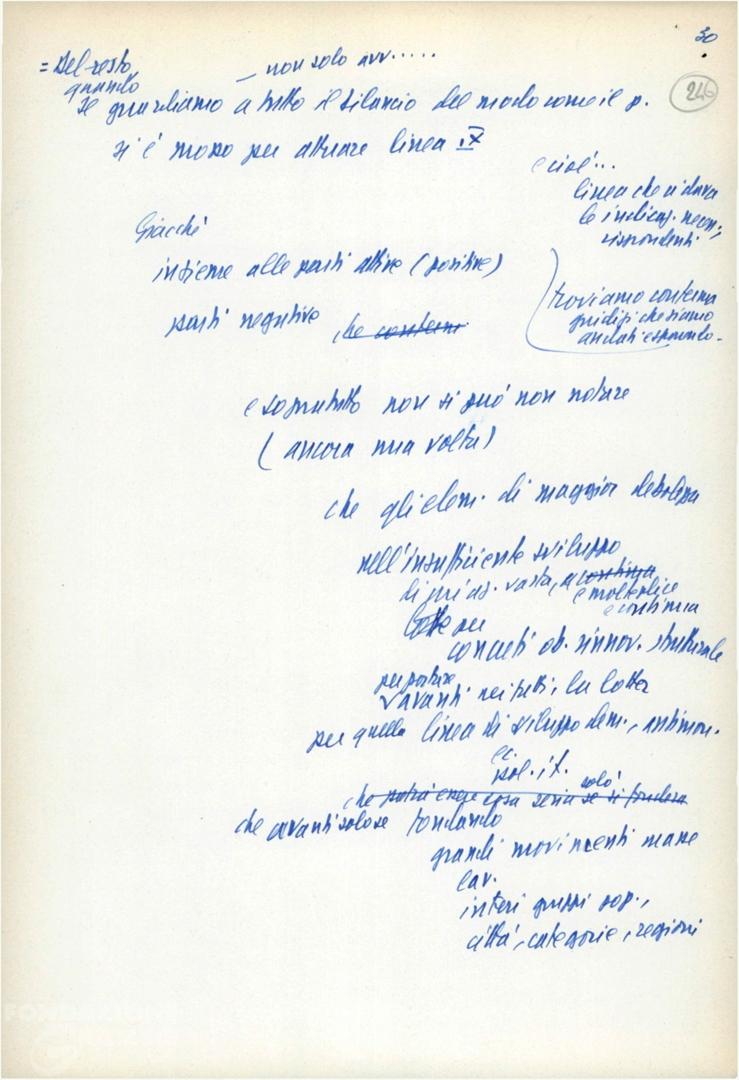 30
246
= Del resto
— non solo avv.....
quando
se guardiamo a tutto il bilancio del modo come il p.
si è mosso per attuare linea IX
e cioè...
linea che ci dava
le indicaz. neces.,
rispondenti
Giacché
insieme alle parti attive (positive)
troviamo conferma
giudizi che siamo
andati esprimendo.
parti negative che conferm.
e soprattutto non si può non notare
(ancora una volta)
che gli elem. di maggior debolezza
nell'insufficiente sviluppo
di più az. vasta, e continua
e molteplice
e continua
lotte per
concreti ob. rinnov. strutturale
per portare
avanti nei fatti, la lotta
per quella linea di sviluppo dem., antimon.
ec.
pol. it.
che potrà essere cosa seria se si fonderà
solo
che avanti solo se fondando
grandi movimenti masse
lav.
interi gruppi pop.,
città, categorie, regioni